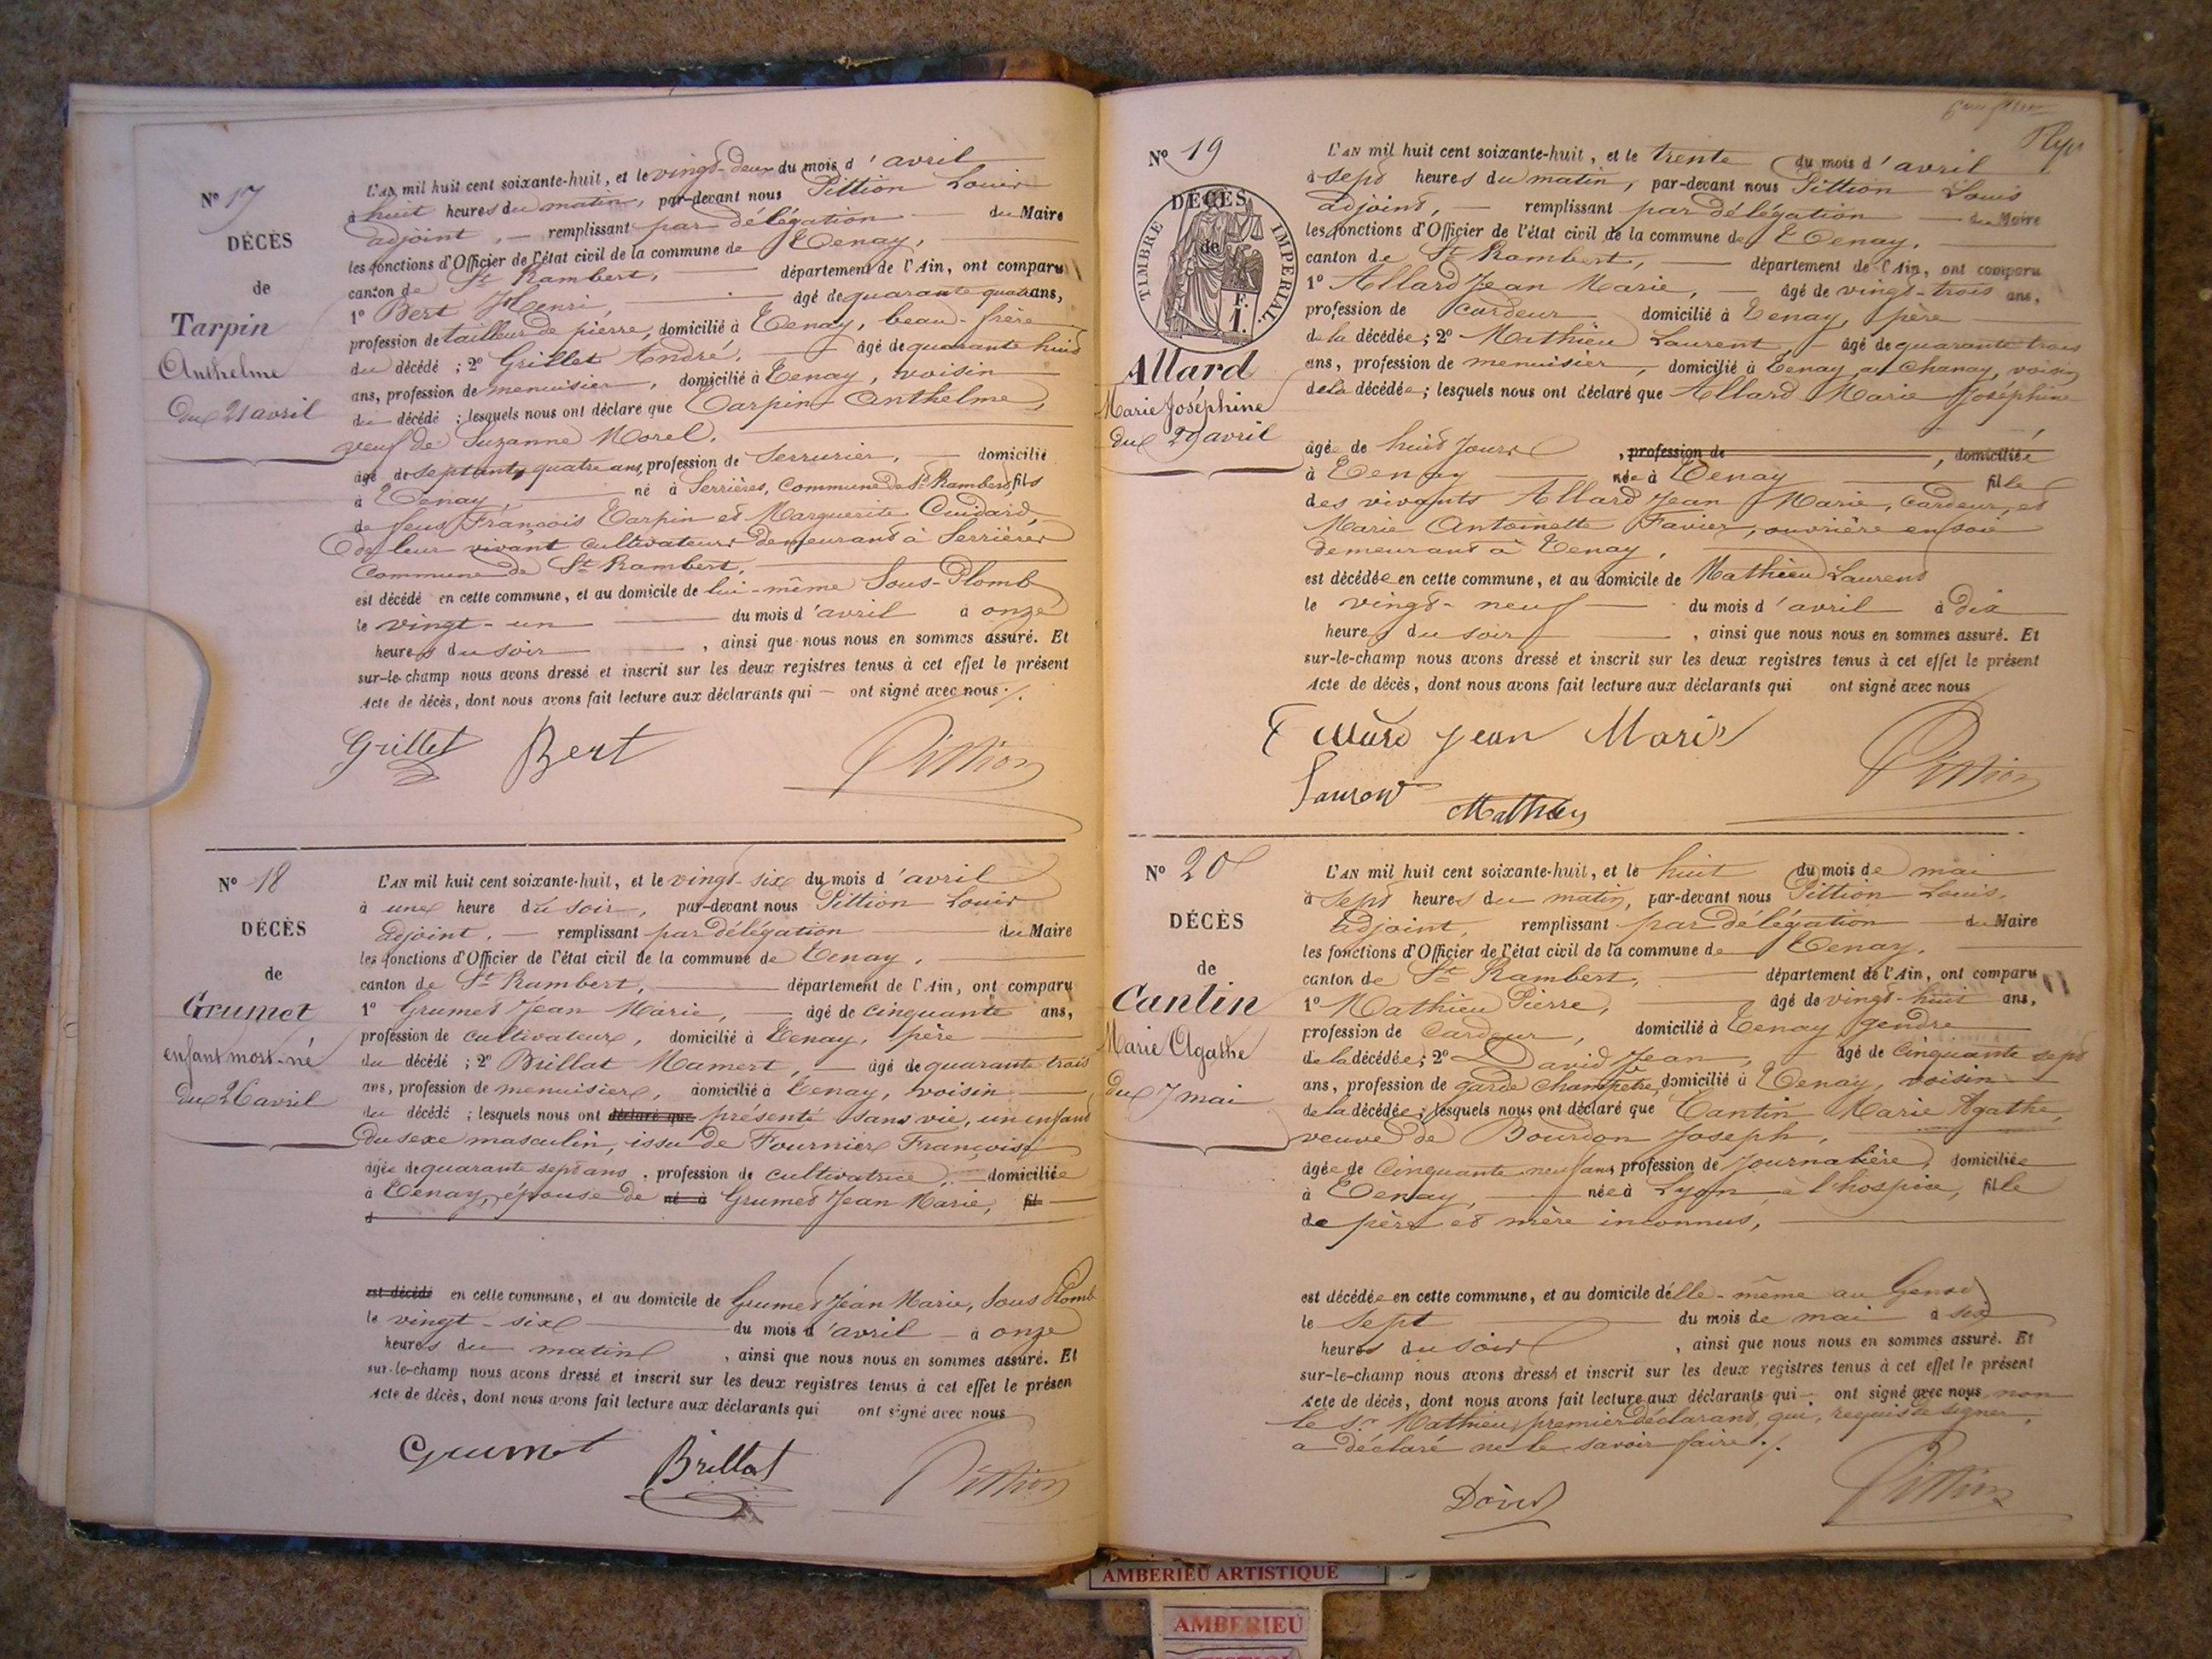 N° 17
DÉCÈS
de
Tarpin
Anthelme
du 21 avril
L'AN mil huit cent soixante-huit, et le vingt-deux du mois d'avril
à huit heures du matin, par-devant nous Pittion Louis
adjoint, — remplissant par délégation — du Maire
les fonctions d'Officier de l'état civil de la commune de Tenay,
canton de St Rambert, — département de l'Ain, ont comparu
1° Bert Henri, — âgé de quarante quatre ans,
profession de tailleur de pierre, domicilié à Tenay, beau-frère
du décédé ; 2° Grillet André, — âgé de quarante huit
ans, profession de menuisier, domicilié à Tenay, voisin
du décédé ; lesquels nous ont déclaré que Tarpin Anthelme,
veuf de Suzanne Morel,
âgé de septante quatre ans, profession de Serrurier, — domicilié
à Tenay — né à Serrières, Commune de St Rambert, fils
de feus François Tarpin et Marguerite Cuidard,
de leur vivant cultivateurs demeurant à Serrières
Commune de St Rambert,
est décédé en cette commune, et au domicile de lui-même Sous-Plomb
le vingt-un — du mois d'avril à onze
heures du soir — , ainsi que nous nous en sommes assuré. Et
sur-le-champ nous avons dressé et inscrit sur les deux registres tenus à cet effet le présent
Acte de décès, dont nous avons fait lecture aux déclarants qui — ont signé avec nous ./.
Grillet Bert Pittion
N° 18
DÉCÈS
de
Grumet
enfant mort-né
du 26 avril
L'AN mil huit cent soixante-huit, et le vingt-six du mois d'avril
à une heure du soir, par-devant nous Pittion Louis
adjoint, — remplissant par délégation — du Maire
les fonctions d'Officier de l'état civil de la commune de Tenay,
canton de St Rambert, — département de l'Ain, ont comparu
1° Grumet Jean Marie, — âgé de cinquante ans,
profession de cultivateur, domicilié à Tenay, père
du décédé ; 2° Brillat Mamert, — âgé de quarante trois
ans, profession de menuisier, domicilié à Tenay, voisin
du décédé ; lesquels nous ont déclaré que présenté sans vie, un enfant
du sexe masculin, issu de Fournier Françoise
âgée de quarante sept ans, profession de cultivatrice, — domiciliée
à Tenay, épouse de né à Grumet Jean Marie, fil
d
est décédé en cette commune, et au domicile de Grumet Jean Marie, Sous Plomb
le vingt-six — du mois d'avril — à onze
heures du matin , ainsi que nous nous en sommes assuré. Et
sur-le-champ nous avons dressé et inscrit sur les deux registres tenus à cet effet le présen
Acte de décès, dont nous avons fait lecture aux déclarants qui ont signé avec nous
Grumet Brillat Pittion
N° 19
DÉCÈS
de
TIMBRE IMPERIAL
F.
1.
Allard
Marie Joséphine
du 29 avril
L'AN mil huit cent soixante-huit, et le trente du mois d'avril
à sept heures du matin, par-devant nous Pittion Louis
adjoint, — remplissant par délégation — du Maire
les fonctions d'Officier de l'état civil de la commune de Tenay,
canton de St Rambert, — département de l'Ain, ont comparu
1° Allard Jean Marie, — âgé de vingt-trois ans,
profession de cardeur domicilié à Tenay, père
de la décédée ; 2° Mathieu Laurent, — âgé de quarante trois
ans, profession de menuisier, domicilié à Tenay, au Chanay, voisin
de la décédée ; lesquels nous ont déclaré que Allard Marie Joséphine,
âgée de huit jours , profession de , domiciliée
à Tenay — née à Tenay — fille
des vivants Allard Jean Marie, cardeur, et
Marie Antoinette Favier, ouvrière en soie
demeurant à Tenay,
est décédée en cette commune, et au domicile de Mathieu Laurent
le vingt-neuf — du mois d'avril à dix
heures du soir — , ainsi que nous nous en sommes assuré. Et
sur-le-champ nous avons dressé et inscrit sur les deux registres tenus à cet effet le présent
Acte de décès, dont nous avons fait lecture aux déclarants qui ont signé avec nous
Allard Jean Marie
Pittion
Mathieu
N° 20
DÉCÈS
de
Cantin
Marie Agathe
du 7 mai
L'AN mil huit cent soixante-huit, et le huit du mois de mai
à sept heures du matin, par-devant nous Pittion Louis,
adjoint, remplissant par délégation — du Maire
les fonctions d'Officier de l'état civil de la commune de Tenay,
canton de St Rambert, — département de l'Ain, ont comparu
1° Mathieu Pierre, âgé de vingt-huit ans,
profession de Cardeur, domicilié à Tenay, gendre
de la décédée ; 2° David Jean, — âgé de cinquante sept
ans, profession de garde champêtre, domicilié à Tenay, voisin
de la décédée ; lesquels nous ont déclaré que Cantin Marie Agathe,
veuve de Bourdon Joseph,
âgée de cinquante neuf ans, profession de journalière, domiciliée
à Tenay, — née à Lyon à l'hospice, fille
de père et mère inconnus,
est décédée en cette commune, et au domicile d'elle-même au
le sept — du mois de mai à six
heures du soir , ainsi que nous nous en sommes assuré. Et
sur-le-champ nous avons dressé et inscrit sur les deux registres tenus à cet effet le présent
Acte de décès, dont nous avons fait lecture aux déclarants qui — ont signé avec nous, non
le sr Mathieu, premier déclarant, qui, requis de signer,
a déclaré ne le savoir faire ./.
Pittion
AMBERIEU ARTISTIQUE
AMBERIEU